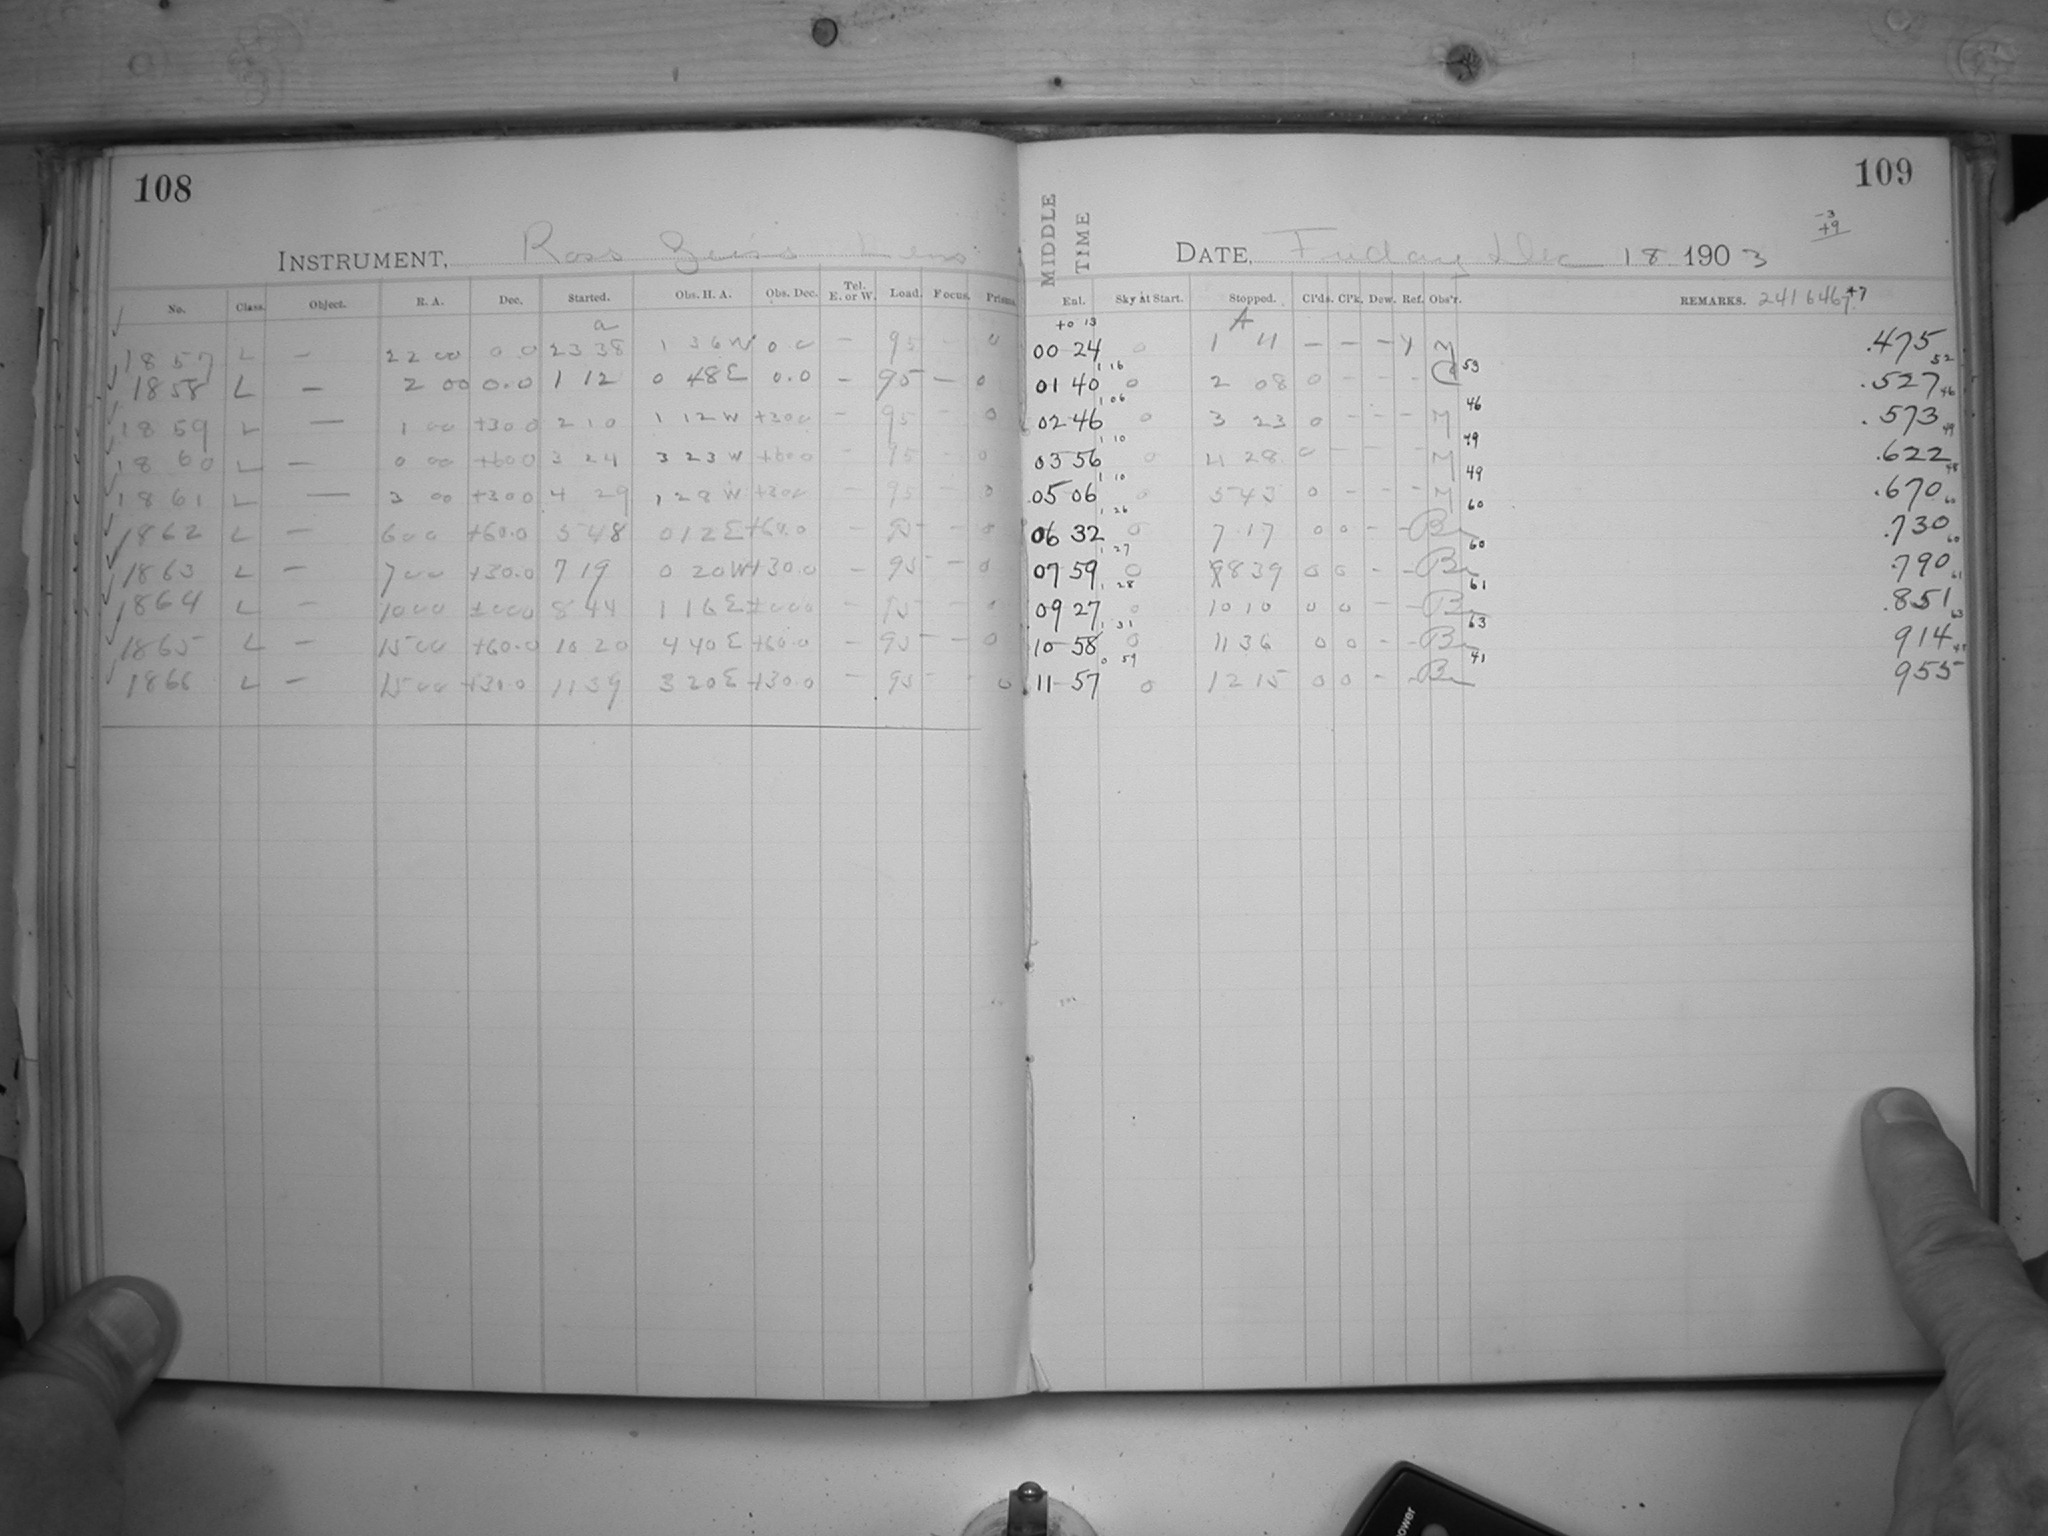 108
INSTRUMENT, Ross Zeiss Lens
No. Class. Object. R. A. Dec. Started. Obs. H. A. Obs. Dec. Tel. E. or W. Load. Focus. Prisms.
a
1857 L — 22 00 0 0 23 38 1 36 W 0.0 — 95 — 0
1858 L — 2 00 0.0 1 12 0 48 E 0.0 — 95 — 0
1859 L — 1 00 +30 0 2 10 1 12 W +30 0 — 95 — 0
1860 L — 0 00 +60 0 3 24 3 23 W +60 0 — 95 — 0
1861 L — 3 00 +30 0 4 29 1 28 W +30 0 — 95 — 0
1862 L — 6 00 +60.0 5 48 0 12 E +60.0 — 95 — 0
1863 L — 7 00 +30.0 7 19 0 20 W +30.0 — 95 — 0
1864 L — 10 00 ±000 8 44 1 16 E ±000 — 95 — 0
1865 L — 15 00 +60.0 10 20 4 40 E +60.0 — 95 — 0
1866 L — 15 00 +30.0 11 39 3 20 E +30.0 — 95 — 0
109
MIDDLE TIME
-3
+9
DATE, Friday Dec 18 1903
Ent. Sky at Start. Stopped. Cl'ds. Cl'k. Dew. Ref. Obs'r. REMARKS. 2416467 +7
+0 13 A
00 24 0 1 11 — — — Y M .475 52
1 16 53
01 40 0 2 08 0 - - - C .527 46
1 06 46
02 46 0 3 23 0 - - - M .573 49
1 10 49
03 56 0 4 28 0 - - - M .622 48
1 10 49
05 06 0 5 43 0 - - - M .670 60
1 26 60
06 32 0 7 17 0 0 - - Br .730 60
1 27 60
07 59 0 8 39 0 0 - - Br .790 61
1 28 61
09 27 0 10 10 0 0 - - Br .851 63
1 31 63
10 58 0 11 36 0 0 - - Br 914 41
0 59 41
11 57 0 12 15 0 0 - - Br 955
ower